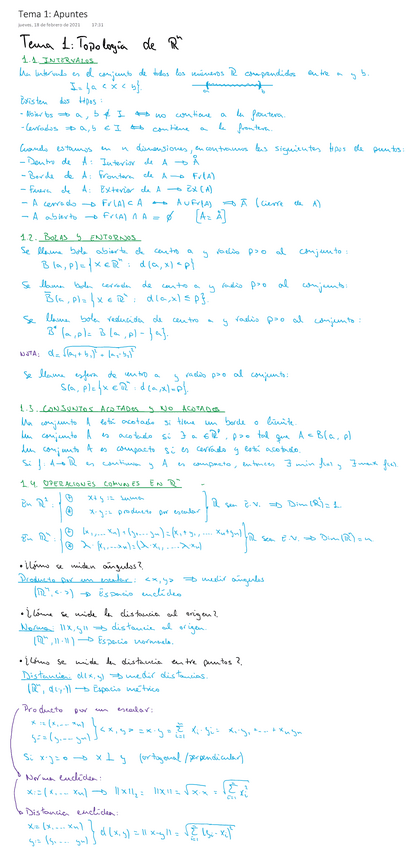 Tema 1: Apuntes
jueves, 18 de febrero de 2021 17:31
Tema 1: Topología de ℝⁿ
1.1. INTERVALOS
Un intervalo es el conjunto de todos los números ℝ comprendidos entre a y b.
I = {a < x < b}.
Existen dos tipos:
- Abiertos ⇒ a, b ∉ I ⟺ no contiene a la frontera.
- Cerrados ⇒ a, b ∈ I ⟺ contiene a la frontera.
Cuando estamos en n dimensiones, encontramos los siguientes tipos de puntos:
- Dentro de A: Interior de A → Å
- Borde de A: Frontera de A → Fr(A)
- Fuera de A: Exterior de A → Ext(A)
- A cerrado → Fr(A) ⊂ A ⟷ A ∪ Fr(A) ⇒ Ā (cierre de A)
- A abierto → Fr(A) ∩ A = ∅ [A = Å]
1.2. BOLAS Y ENTORNOS
Se llama bola abierta de centro a y radio ρ>0 al conjunto:
B(a,ρ) = {x ∈ ℝⁿ : d(a,x) < ρ}
Se llama bola cerrada de centro a y radio ρ>0 al conjunto:
B̄(a,ρ) = {x ∈ ℝⁿ : d(a,x) ≤ ρ}.
Se llama bola reducida de centro a y radio ρ>0 al conjunto:
B*(a,ρ) = B(a,ρ) - {a}.
NOTA:
Se llama esfera de centro a y radio ρ>0 al conjunto:
S(a,ρ) = {x ∈ ℝⁿ : d(a,x) = ρ}.
1.3. CONJUNTOS ACOTADOS Y NO ACOTADOS
Un conjunto A está acotado si tiene un borde o límite.
Un conjunto A es acotado si ∃ a ∈ ℝⁿ, ρ>0 tal que A ⊂ B(a,ρ)
Un conjunto A es compacto si es cerrado y está acotado.
Si f: A→ℝ es continua y A es compacto, entonces ∃ min f(x) y ∃ max f(x)
1.4. OPERACIONES COMUNES EN ℝⁿ
x+y := suma
x·y := producto por escalar
ℝ sea E.V. ⇒ Dim(ℝ) = 1
En ℝⁿ: (x₁,...,xₙ)+(y₁,...,yₙ) = (x₁+y₁, ..., xₙ+yₙ)
λ·(x₁,...,xₙ) = (λx₁, ..., λxₙ)
ℝ sea E.V. ⇒ Dim(ℝⁿ) = n
• ¿Cómo se miden ángulos?
Producto por un escalar: <x,y> ⇒ medir ángulos
(ℝⁿ, <·>) → Espacio euclídeo
• ¿Cómo se mide la distancia al origen?
Norma: ||x,y|| ⇒ distancia al origen.
(ℝⁿ, ||·||) → Espacio normado.
• ¿Cómo se mide la distancia entre puntos?
Distancia: d(x,y) ⇒ medir distancias.
(ℝⁿ, d(·,·)) → Espacio métrico
Producto por un escalar:
x := (x₁,...,xₙ)
y := (y₁,...,yₙ)
<x,y> = x·y = Σ xᵢ·yᵢ = x₁·y₁ + ... + xₙyₙ
Si x·y = 0 → x ⊥ y (ortogonal/perpendicular)
Norma euclídea:
x := (x₁,...,xₙ) → ||x||₂ = ||x|| = √x·x = √Σxᵢ²
Distancia euclídea:
x := (x₁,...,xₙ)
y := (y₁,...,yₙ)
d(x,y) = ||x-y|| = √Σ(yᵢ-xᵢ)²